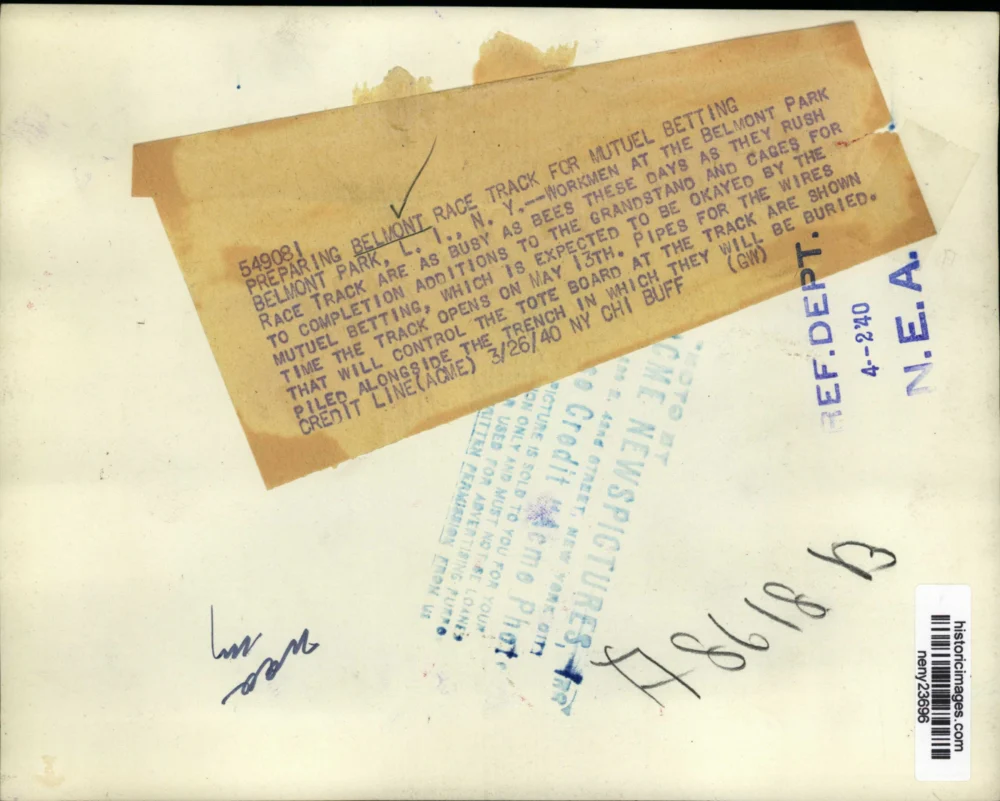 549081
PREPARING BELMONT RACE TRACK FOR MUTUEL BETTING
BELMONT PARK, L. I., N. Y.--WORKMEN AT THE BELMONT PARK
RACE TRACK ARE AS BUSY AS BEES THESE DAYS AS THEY RUSH
TO COMPLETION ADDITIONS TO THE GRANDSTAND AND CAGES FOR
MUTUEL BETTING, WHICH IS EXPECTED TO BE OKAYED BY THE
TIME THE TRACK OPENS ON MAY 13TH. PIPES FOR THE WIRES
THAT WILL CONTROL THE TOTE BOARD AT THE TRACK ARE SHOWN
PILED ALONGSIDE THE TRENCH IN WHICH THEY WILL BE BURIED.
CREDIT LINE(ACME) 3/26/40 NY CHI BUFF (GW)
REF. DEPT.
4--2'40
N.E.A.
BY
NEWSPICTURES,
STREET, NEW YORK CITY
Credit "Acme
PICTURE IS SOLD TO YOU FOR YOUR
ONLY AND MUST NOT BE LOANED
USED FOR ADVERTISING
PERMISSION FROM US
historicimages.com
neny23696